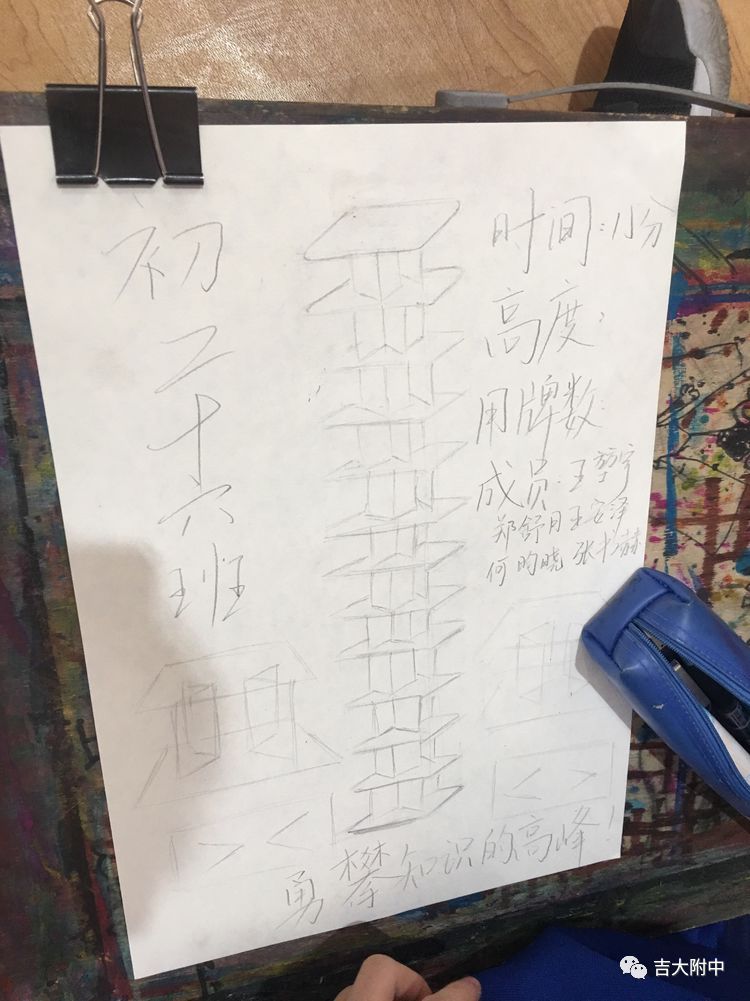 初二十六班
时间:1小分
高度:
用牌数:
成员:王堃宇
郑舒月王安泽
何昀晓 张书赫
勇攀知识的高峰!
吉大附中